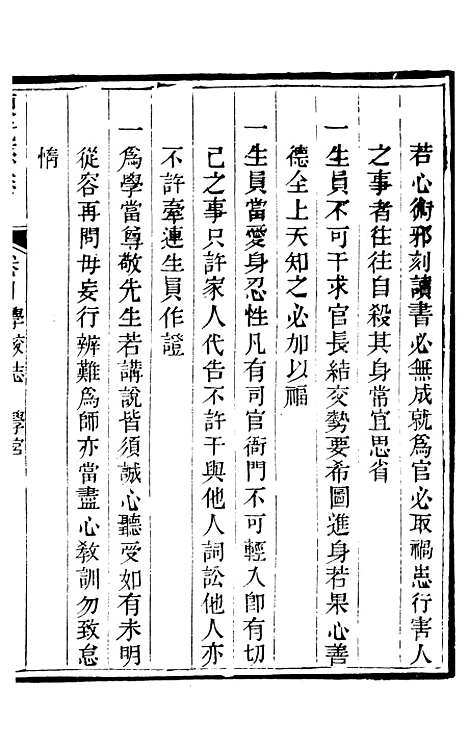 若心術邪刻讀書必無成就爲官必取禍患行害人
之事者往往自殺其身常宜思省
一生員不可干求官長結交勢要希圖進身若果心善
德全上天知之必加以福
一生員當愛身忍性凡有司官衙門不可輕入卽有切
己之事只許家人代告不許干與他人詞訟他人亦
不許牽連生員作證
一爲學當尊敬先生若講說皆須誠心聽受如有未明
從容再問毋妄行辨難爲師亦當盡心敎訓勿致怠
惰
學校志 學宮